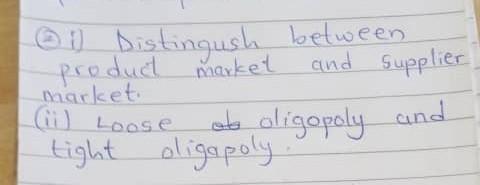 ② i) Distingush between
product market and supplier
market.
(ii) Loose oligopoly and
tight oligapoly.